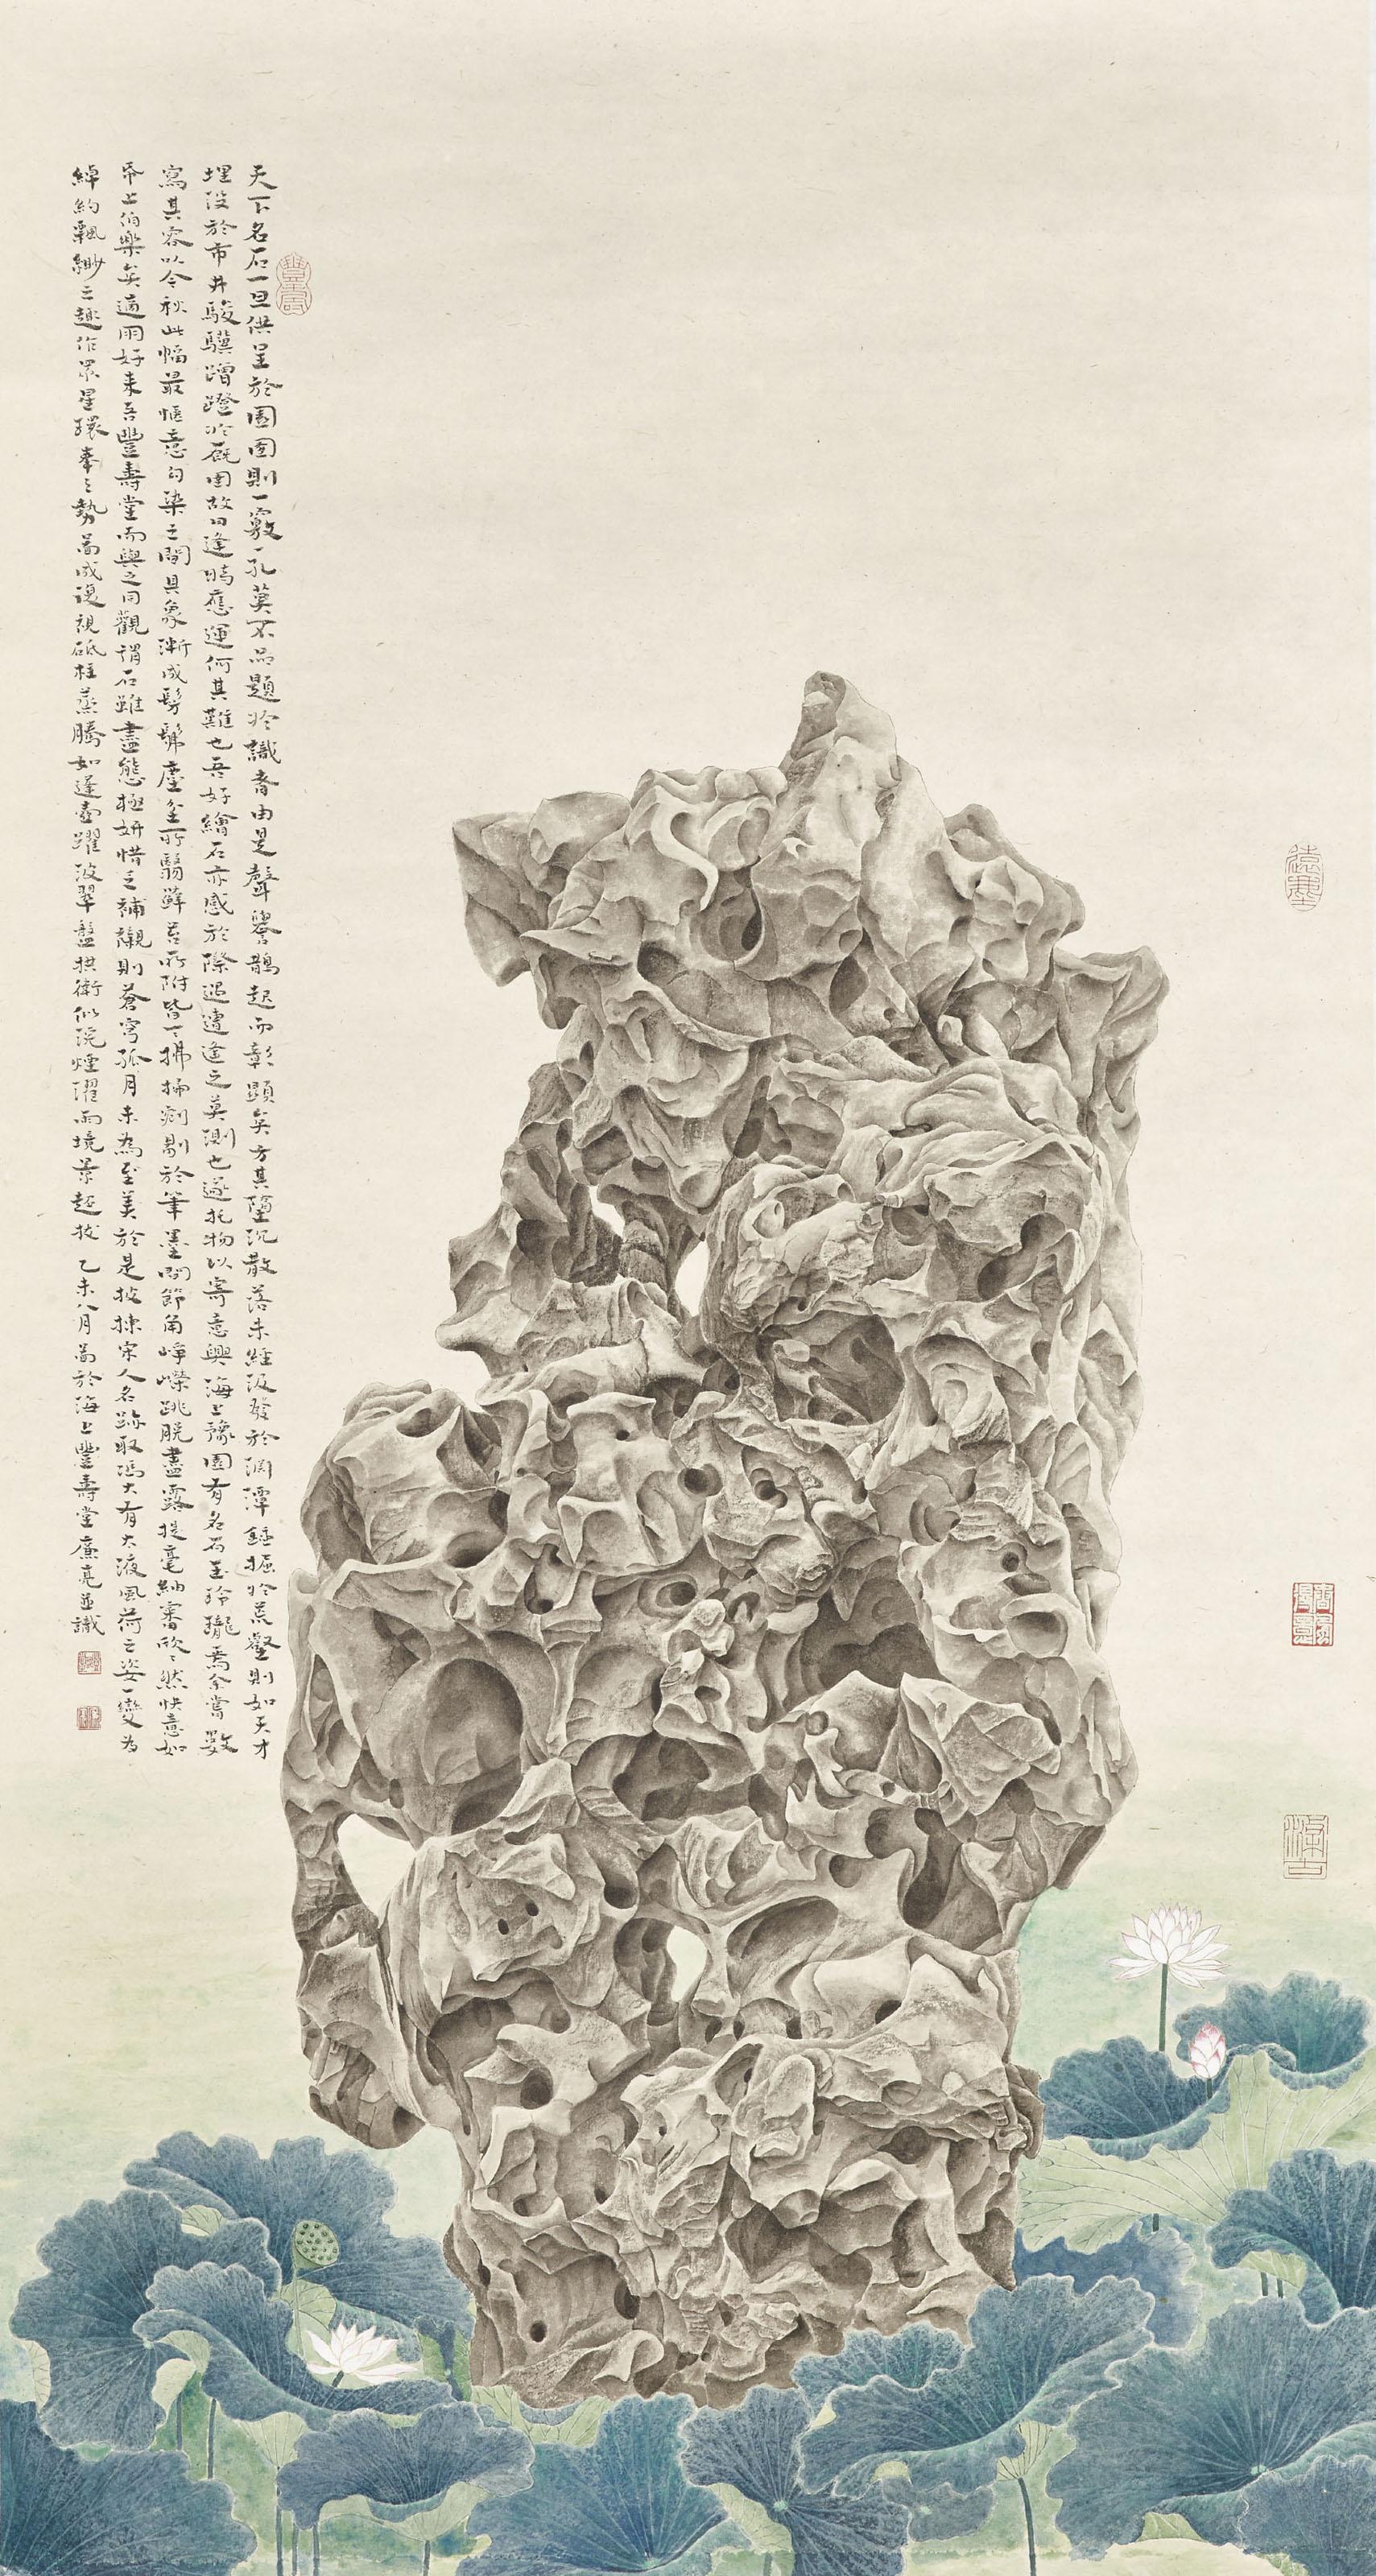 天下名石一旦供呈於園囿則一竅一孔莫不品題於識者由是聲譽鵲起而彰顯矣方其墮沉散落未經汲發於淵潭鋂掘於荒壑則如天才
埋沒於市井駿驥蹭蹬於廐圉故曰逢時應運何其難也吾好繪石亦感於際遇遭逢之莫測也遂托物以寄意興海上豫園有名石玉玲瓏焉余嘗數
寫其容以今秋此幅最愜意勾染之間具象漸成髣髴塵坌所翳蘚苔所附皆一一拂掃剜剔於筆墨間節角崢嶸跳脫盡露提毫紬審欣欣然快意如
帋上伯樂矣適朋好來吾豐壽堂而與之同觀謂石雖盡態極妍惜乏補襯則蒼穹孤月未為至美於是披揀宋人名跡取馮大有太液風荷之姿一變為
綽約飄緲之趣作眾星環拳之勢圖成復視砥柱蒸騰如蓬壺躍波翠盤拱衛似浣煙濯雨境景超拔 乙未八月圖於海上豐壽堂廉亮並識